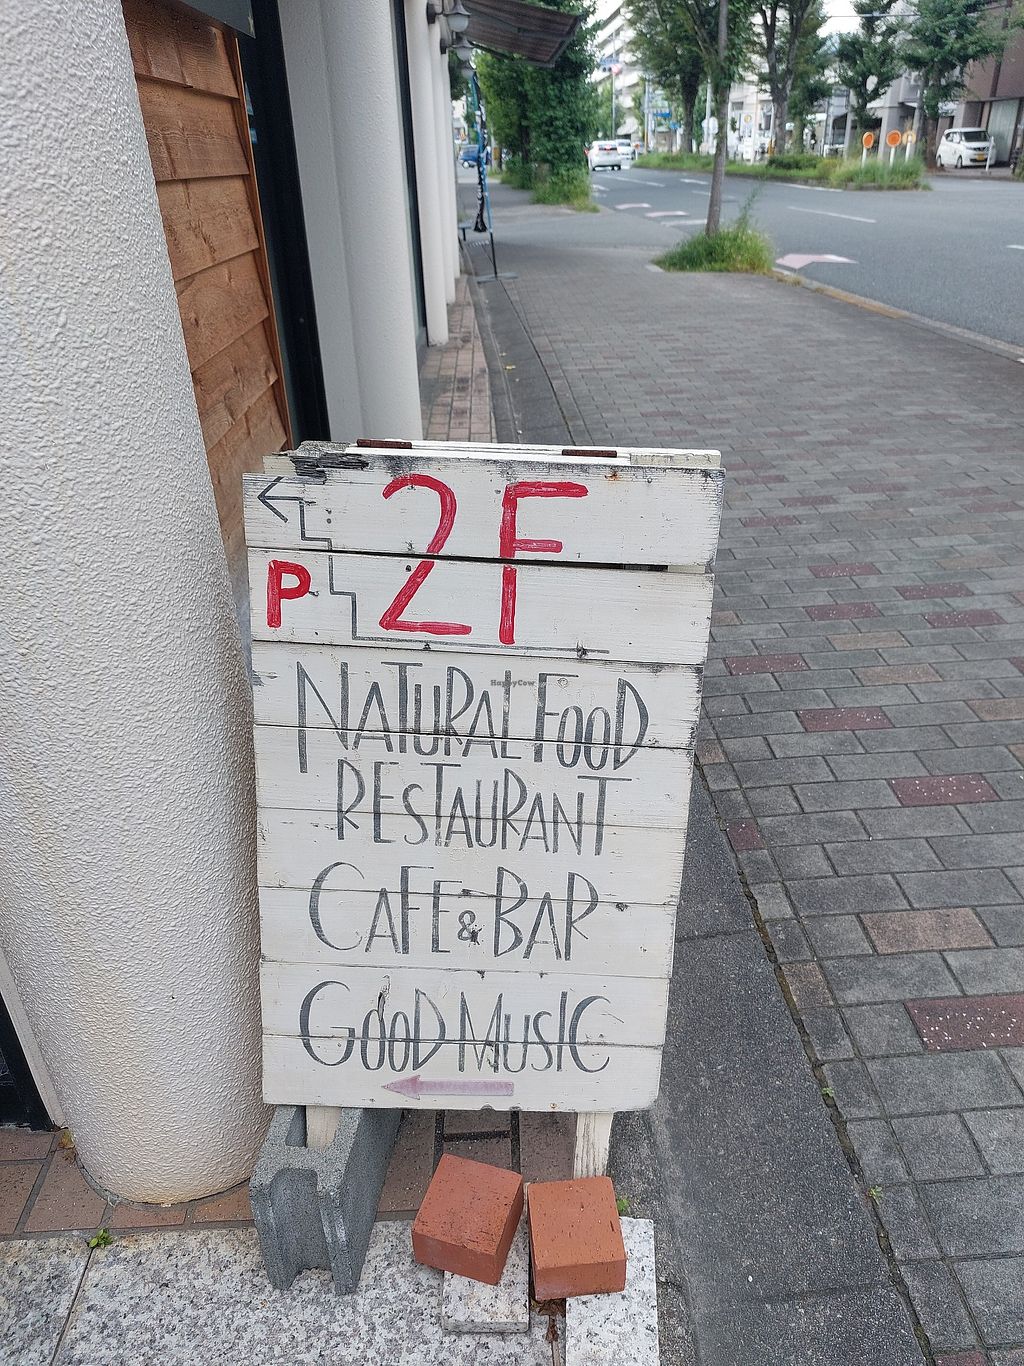 2F
P
NATURAL FOOD
RESTAURANT
CAFE & BAR
GOOD MUSIC
HappyCow